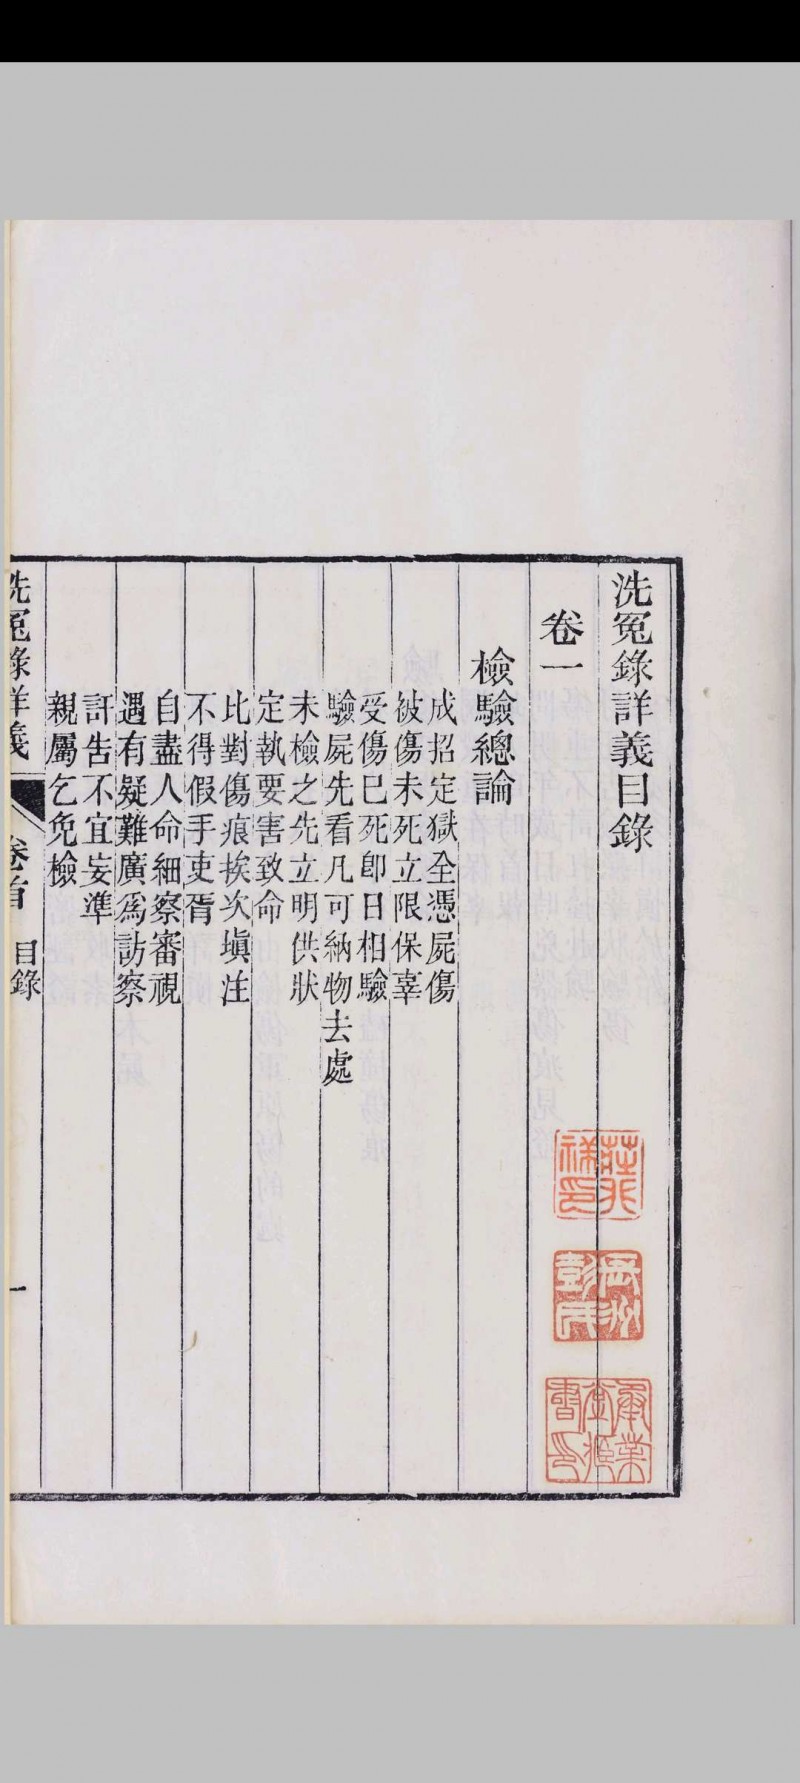 洗冤錄詳義目錄
卷一
檢驗總論
成招定獄全憑屍傷
被傷未死立限保辜
受傷已死卽日相驗
驗屍先看凡可納物去處
未檢之先立明供狀
定執要害致命
比對傷痕挨次塡注
不得假手吏胥
自盡人命細察審視
遇有疑難廣爲訪察
訐告不宜妄準
親屬乞免檢
洗冤錄詳義
卷首
目錄
一
岡州彭氏